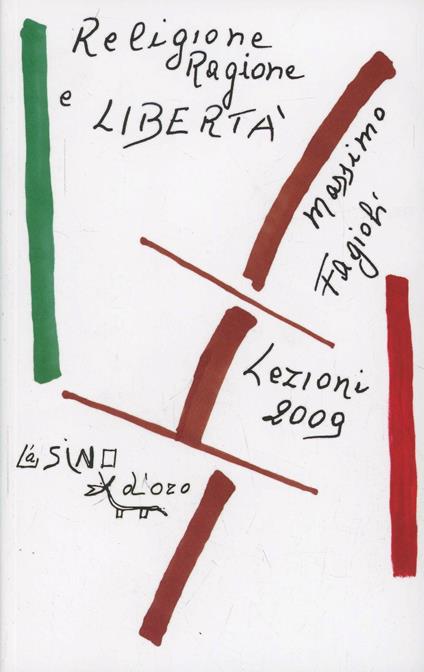 Religione
Ragione
e LIBERTA'
Massimo
Fagioli
Lezioni
2009
L'aSINO
d'oro